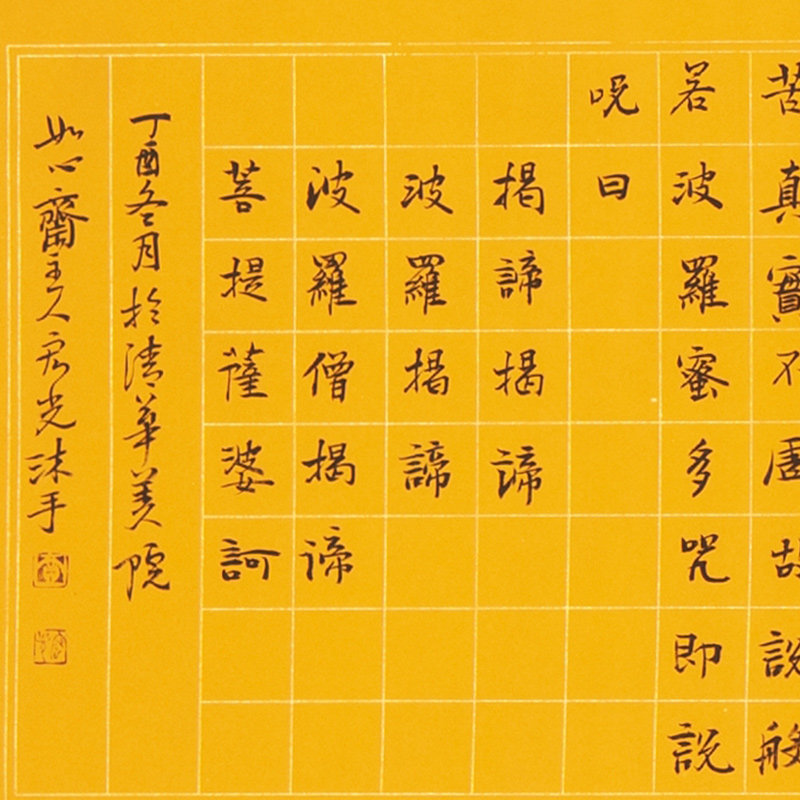 苦真實不虛故說般
若波羅蜜多咒即說
呪曰
揭諦揭諦
波羅揭諦
波羅僧揭諦
菩提薩婆訶
丁酉冬月於清華美院
如心齋主人宏光沐手